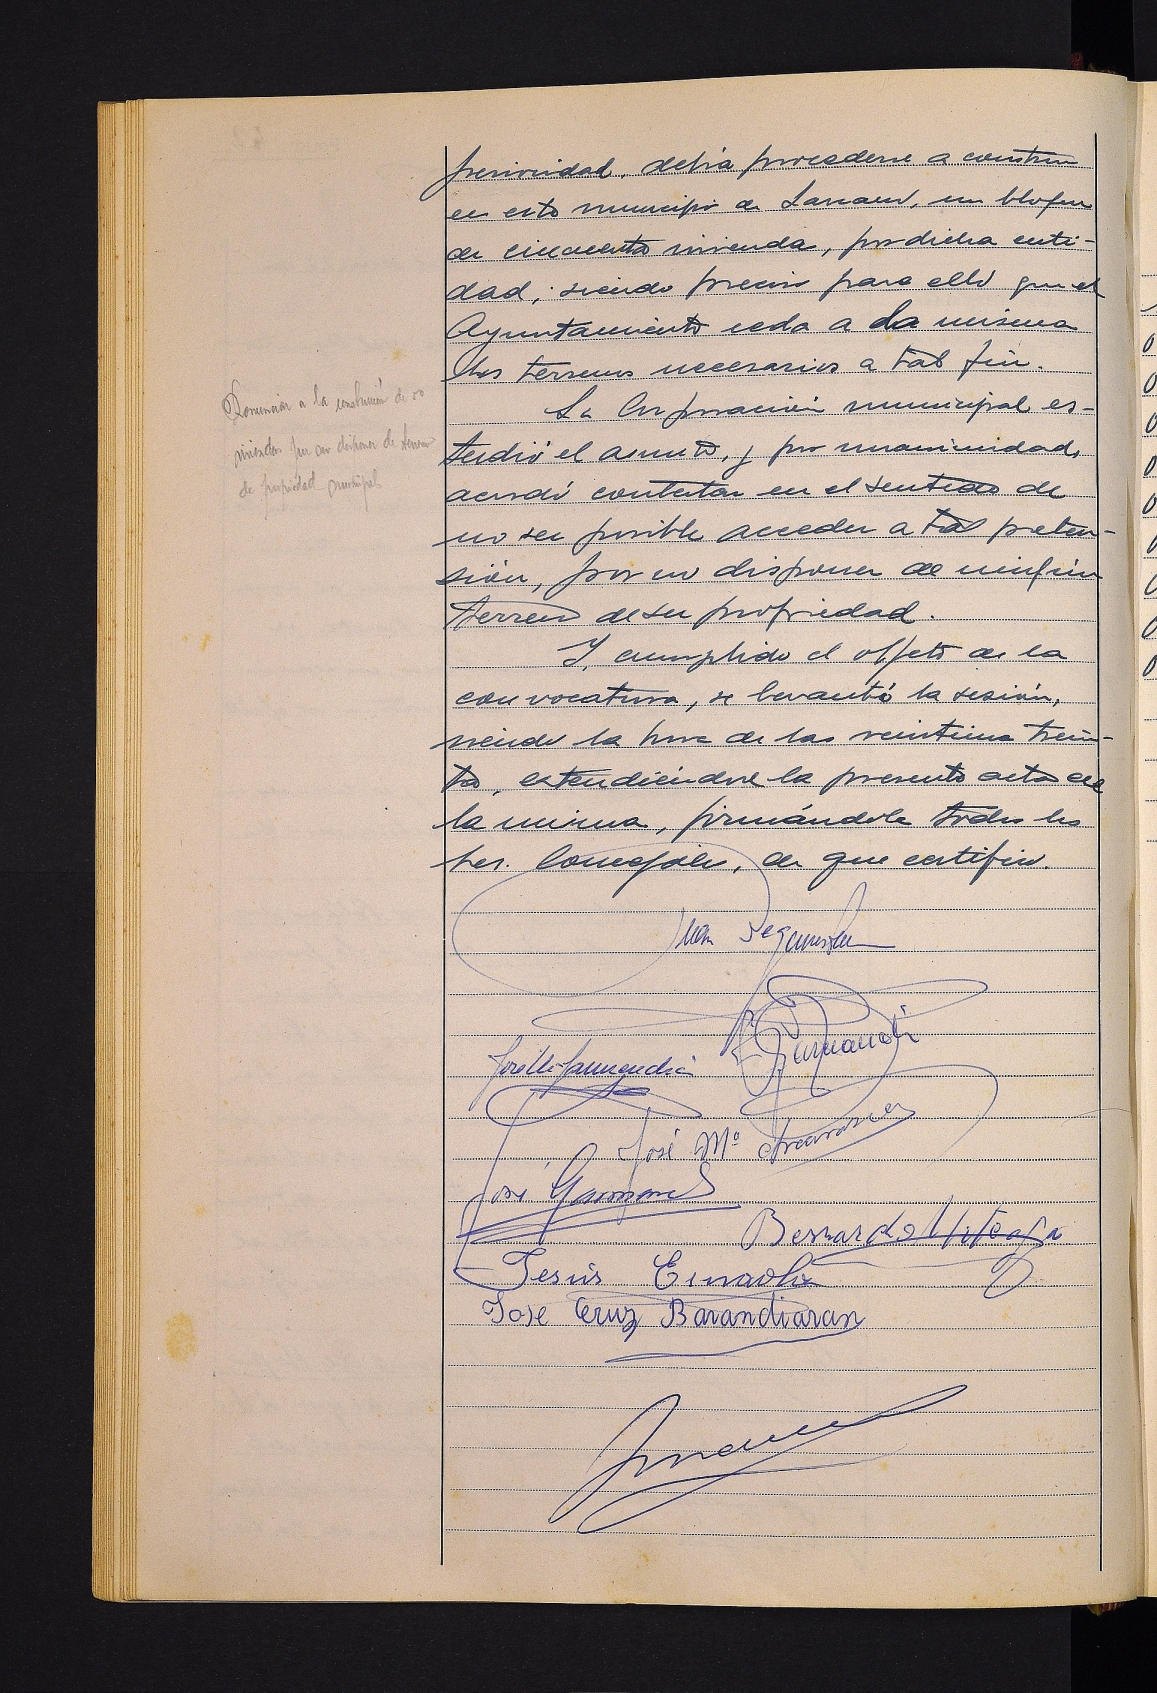 perioridad, debía procederse a construir
en este municipio de Lazcano, un bloque
de cincuenta vivienda, por dicha enti-
dad; siendo preciso para ello que el
Ayuntamiento ceda a la misma
los terrenos necesarios a tal fin.
La Corporación municipal es-
tudió el asunto, y por unanimidad,
acordó contestar en el sentido de
no ser posible acceder a tal preten-
sión, por no disponer de ningún
terreno de su propiedad.
Y, cumplido el objeto de la
convocatoria, se levantó la sesión,
siendo la hora de las veintiuna trein-
ta, extendiéndose la presente acta de
la misma, firmándola todos los
Sres. Concejales, de que certifico.
Renunciar a la construcción de 50
viviendas por no disponer de terreno
de propiedad municipal
Juan
José Mª
José
Bernardo
Jesús
Jose Cruz Barandiaran